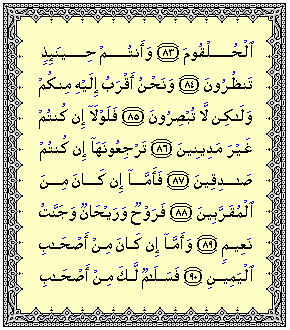 ٱلۡحُلۡقُومَ ٨٣ وَأَنتُمۡ حِينَئِذٖ
تَنظُرُونَ ٨٤ وَنَحۡنُ أَقۡرَبُ إِلَيۡهِ مِنكُمۡ
وَلَٰكِن لَّا تُبۡصِرُونَ ٨٥ فَلَوۡلَآ إِن كُنتُمۡ
غَيۡرَ مَدِينِينَ ٨٦ تَرۡجِعُونَهَآ إِن كُنتُمۡ
صَٰدِقِينَ ٨٧ فَأَمَّآ إِن كَانَ مِنَ
ٱلۡمُقَرَّبِينَ ٨٨ فَرَوۡحٞ وَرَيۡحَانٞ وَجَنَّتُ
نَعِيمٖ ٨٩ وَأَمَّآ إِن كَانَ مِنۡ أَصۡحَٰبِ
ٱلۡيَمِينِ ٩٠ فَسَلَٰمٞ لَّكَ مِنۡ أَصۡحَٰبِ